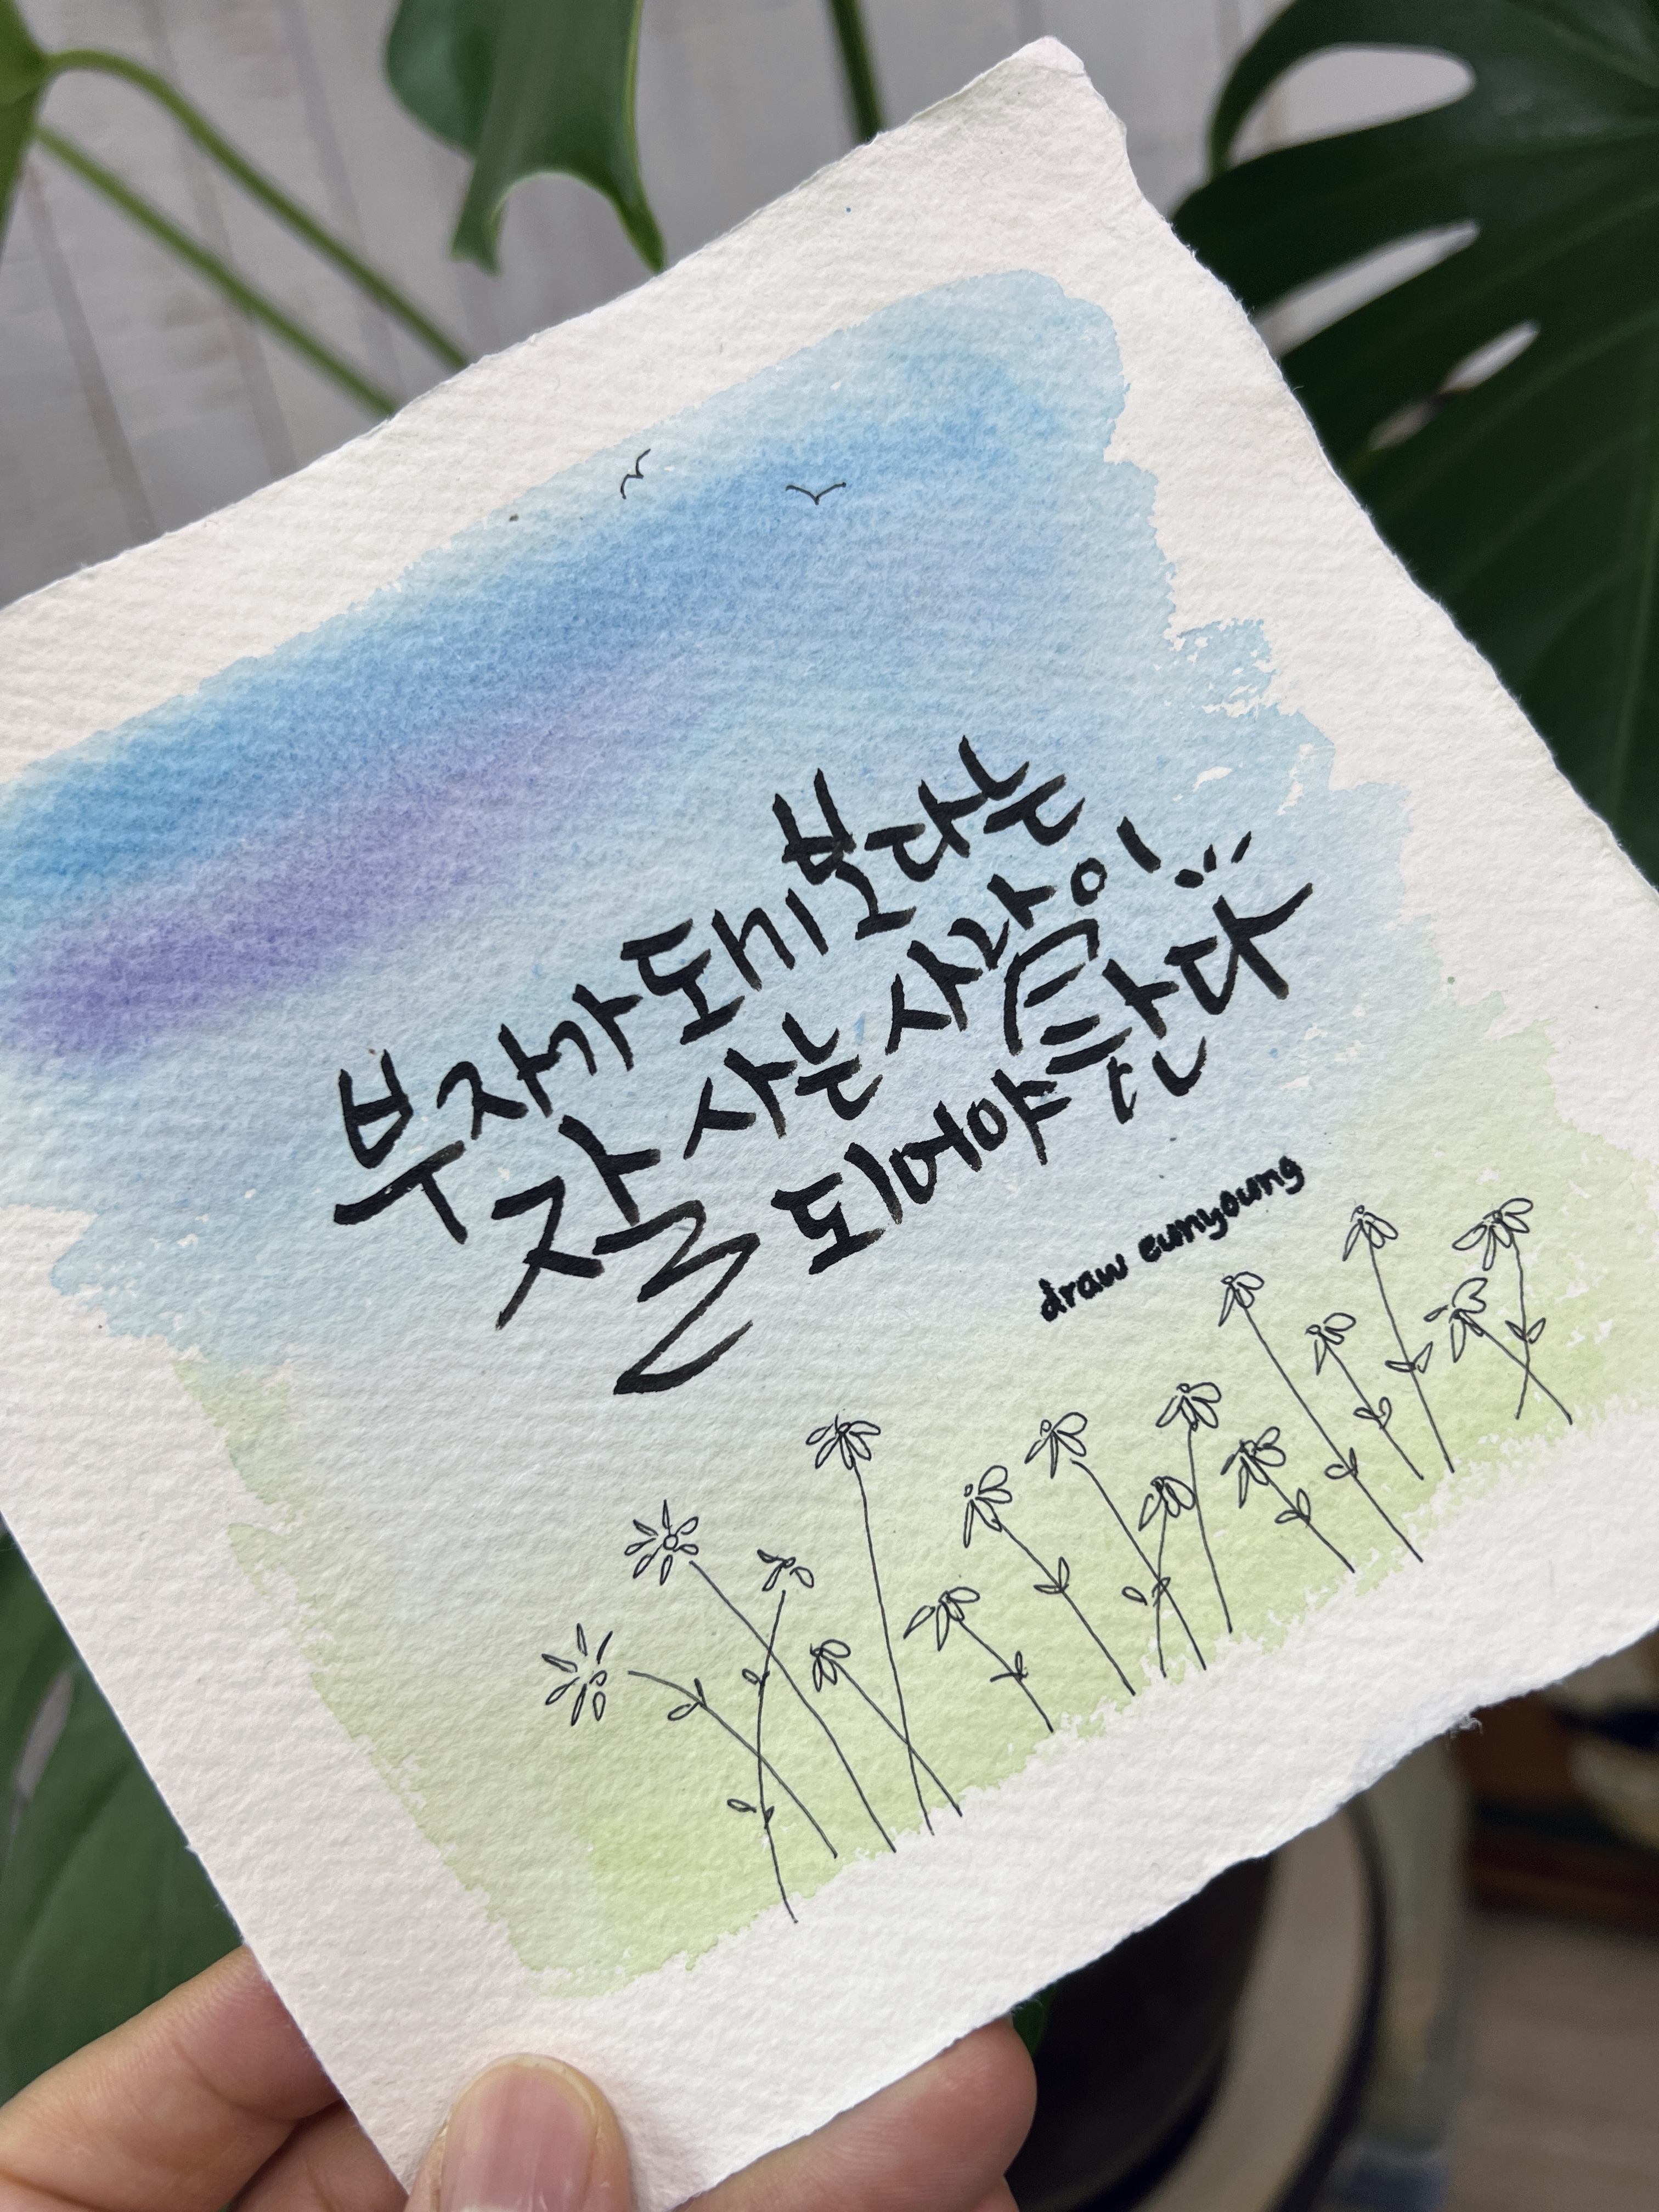 부자가 되기보다는
잘 사는 사람이
되어야 한다
draw eunyoung